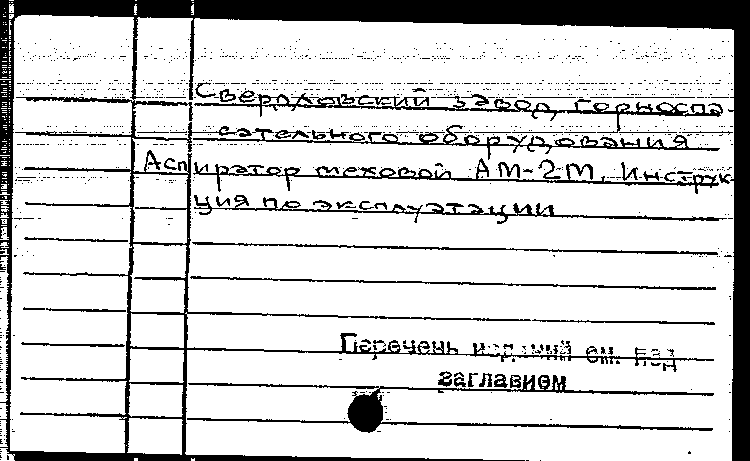 Свердловский завод горноспа-
сательного оборудования
Аспиратор меховой АМ-2М. Инструк-
ция по эксплуатации
Перечень изданий см. под
заглавием